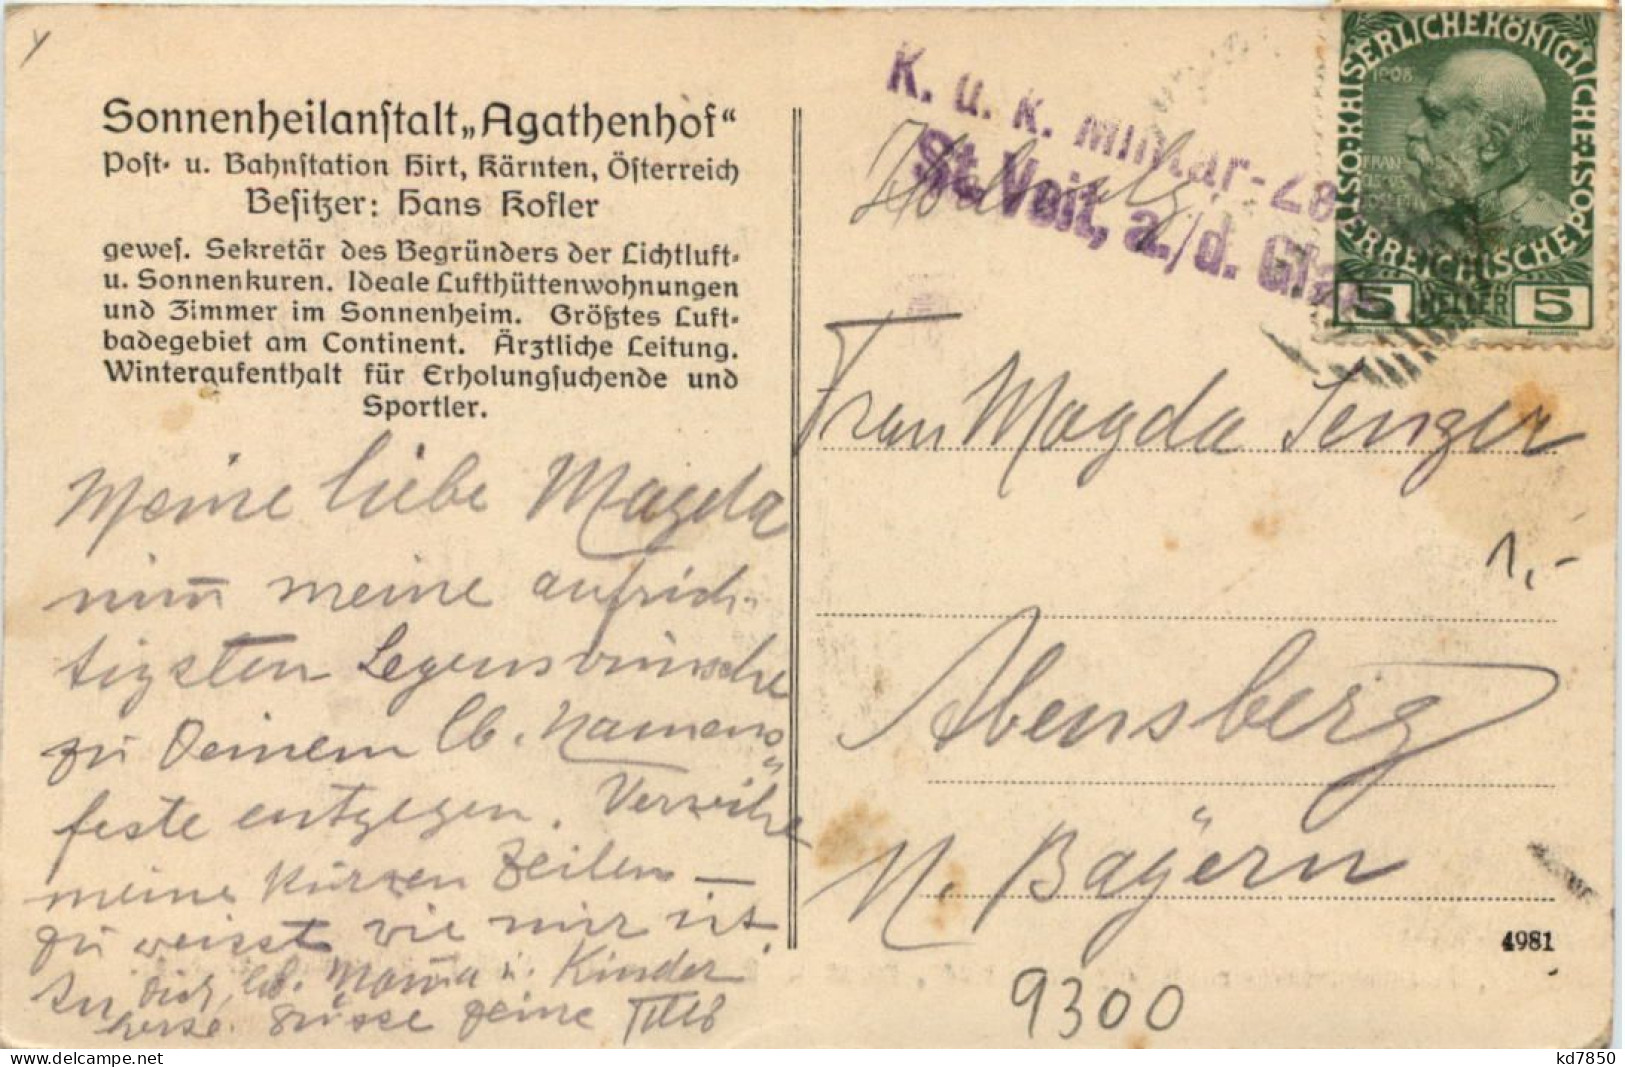 Sonnenheilanstalt „Agathenhof“
Post- u. Bahnstation Hirt, Kärnten, Österreich
Besitzer: Hans Kofler
gewes. Sekretär des Begründers der Lichtluft-
u. Sonnenkuren. Ideale Lufthüttenwohnungen
und Zimmer im Sonnenheim. Größtes Luft-
badegebiet am Continent. Ärztliche Leitung.
Winteraufenthalt für Erholungsuchende und
Sportler.
Meine liebe Magda
nim̅ meine aufrich-
tigsten Segenswünsche
zu Deinem lb. Namens
feste entgegen. Verzeihe
meine kurzen Zeilen –
Du weisst wie mir ist.
Dich, lb. Mama u. Kinder
Grüsse Deine
K. u. k. Militär-
St. Veit, a./d. Gl
KAISERLICHE KÖNIGLICHE ÖSTERREICHISCHE POST
1908
5 HELLER 5
Frau Magda Senger
Abensberg
N. Bayern
1,-
4981
9300
kd7850